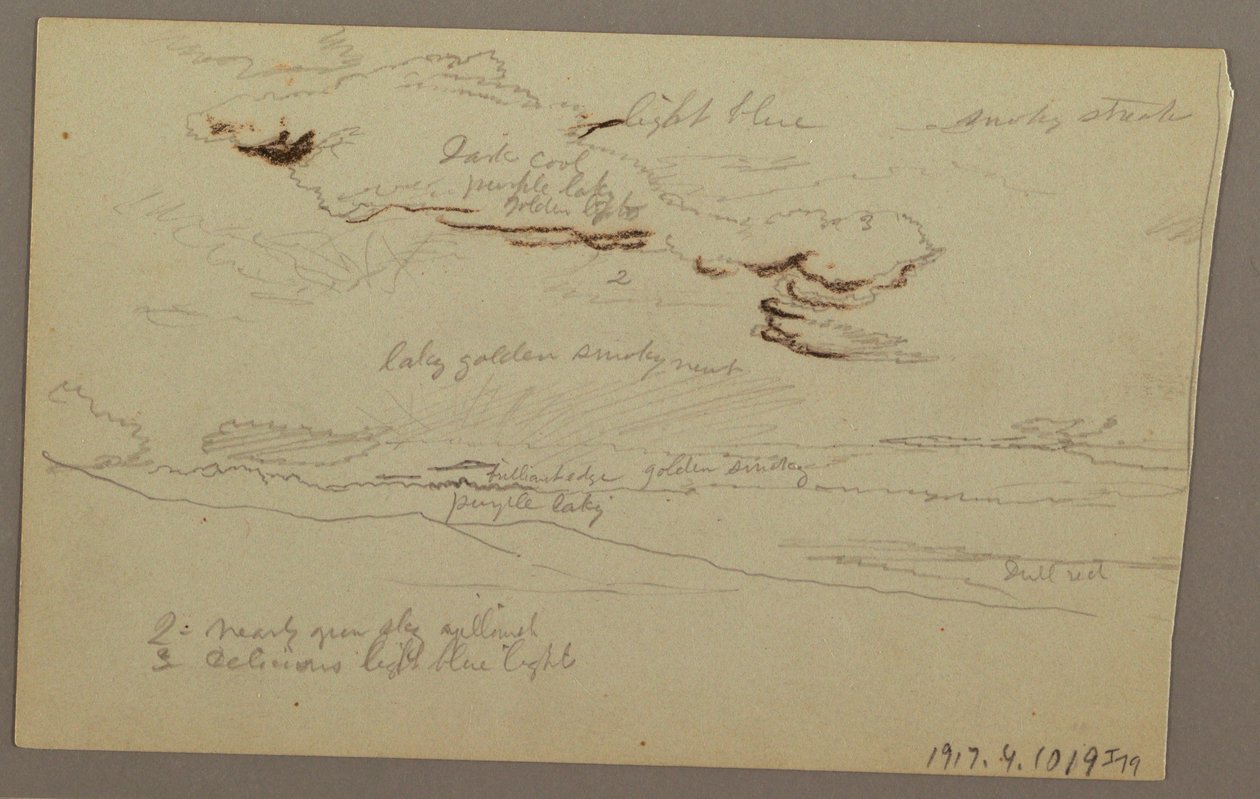 light blue
smoky streak
Dark cool
purple laky
golden lights
3
2
laky golden smoky neut
brilliant edge golden smoky
purple laky
Dull red
2- nearly green sky yellowish
3 delicious light blue light
1917.4.1019 I79